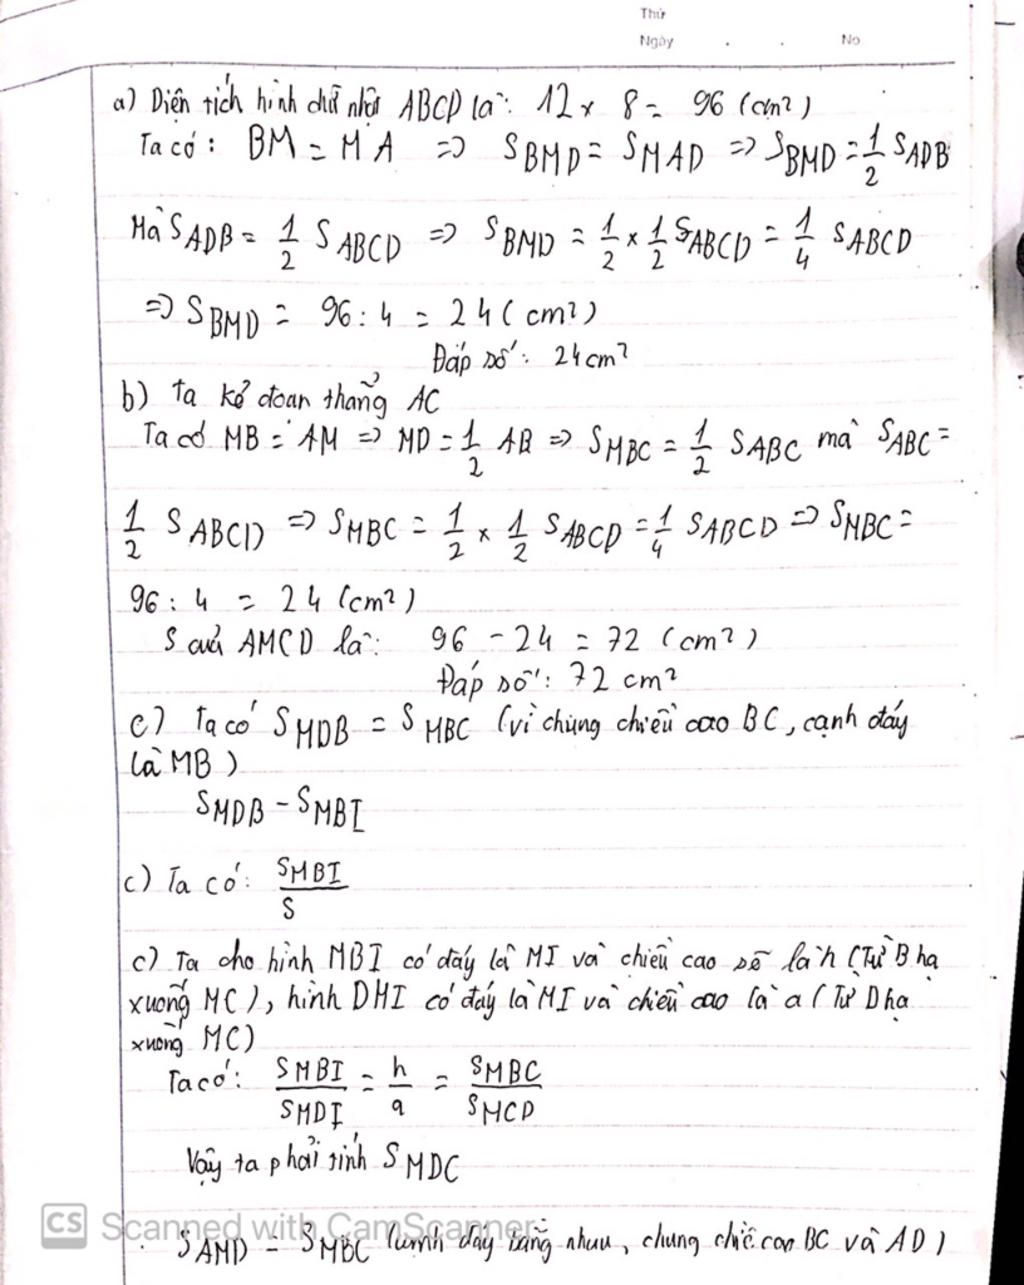 Thứ
Ngày . . No
a) Diện tích hình chữ nhật ABCD là: 12 x 8 = 96 (cm²)
Ta có: BM = MA => S BMD = S MAD => S BMD = 1/2 S ADB
Mà S ADB = 1/2 S ABCD => S BMD = 1/2 x 1/2 S ABCD = 1/4 S ABCD
=> S BMD = 96 : 4 = 24 (cm²)
Đáp số: 24 cm²
b) Ta kẻ đoạn thẳng AC
Ta có MB = AM => MD = 1/2 AB => S MBC = 1/2 S ABC mà S ABC =
1/2 S ABCD => S MBC = 1/2 x 1/2 S ABCD = 1/4 S ABCD => S MBC =
96 : 4 = 24 (cm²)
S của AMCD là: 96 - 24 = 72 (cm²)
Đáp số: 72 cm²
c) Ta có S MDB = S MBC (vì chung chiều cao BC, cạnh đáy
là MB)
S MDB - S MBI
c) Ta có: S MBI / S
c) Ta cho hình MBI có đáy là MI và chiều cao sẽ là h (Từ B hạ
xuống MC), hình DMI có đáy là MI và chiều cao là a (Từ D hạ
xuống MC)
Ta có: S MBI / S MDI = h / a = S MBC / S MCD
Vậy ta phải tính S MDC
CS Scanned with CamScanner
S AMD = S MBC (cạnh đáy bằng nhau, chung chiều cao BC và AD)